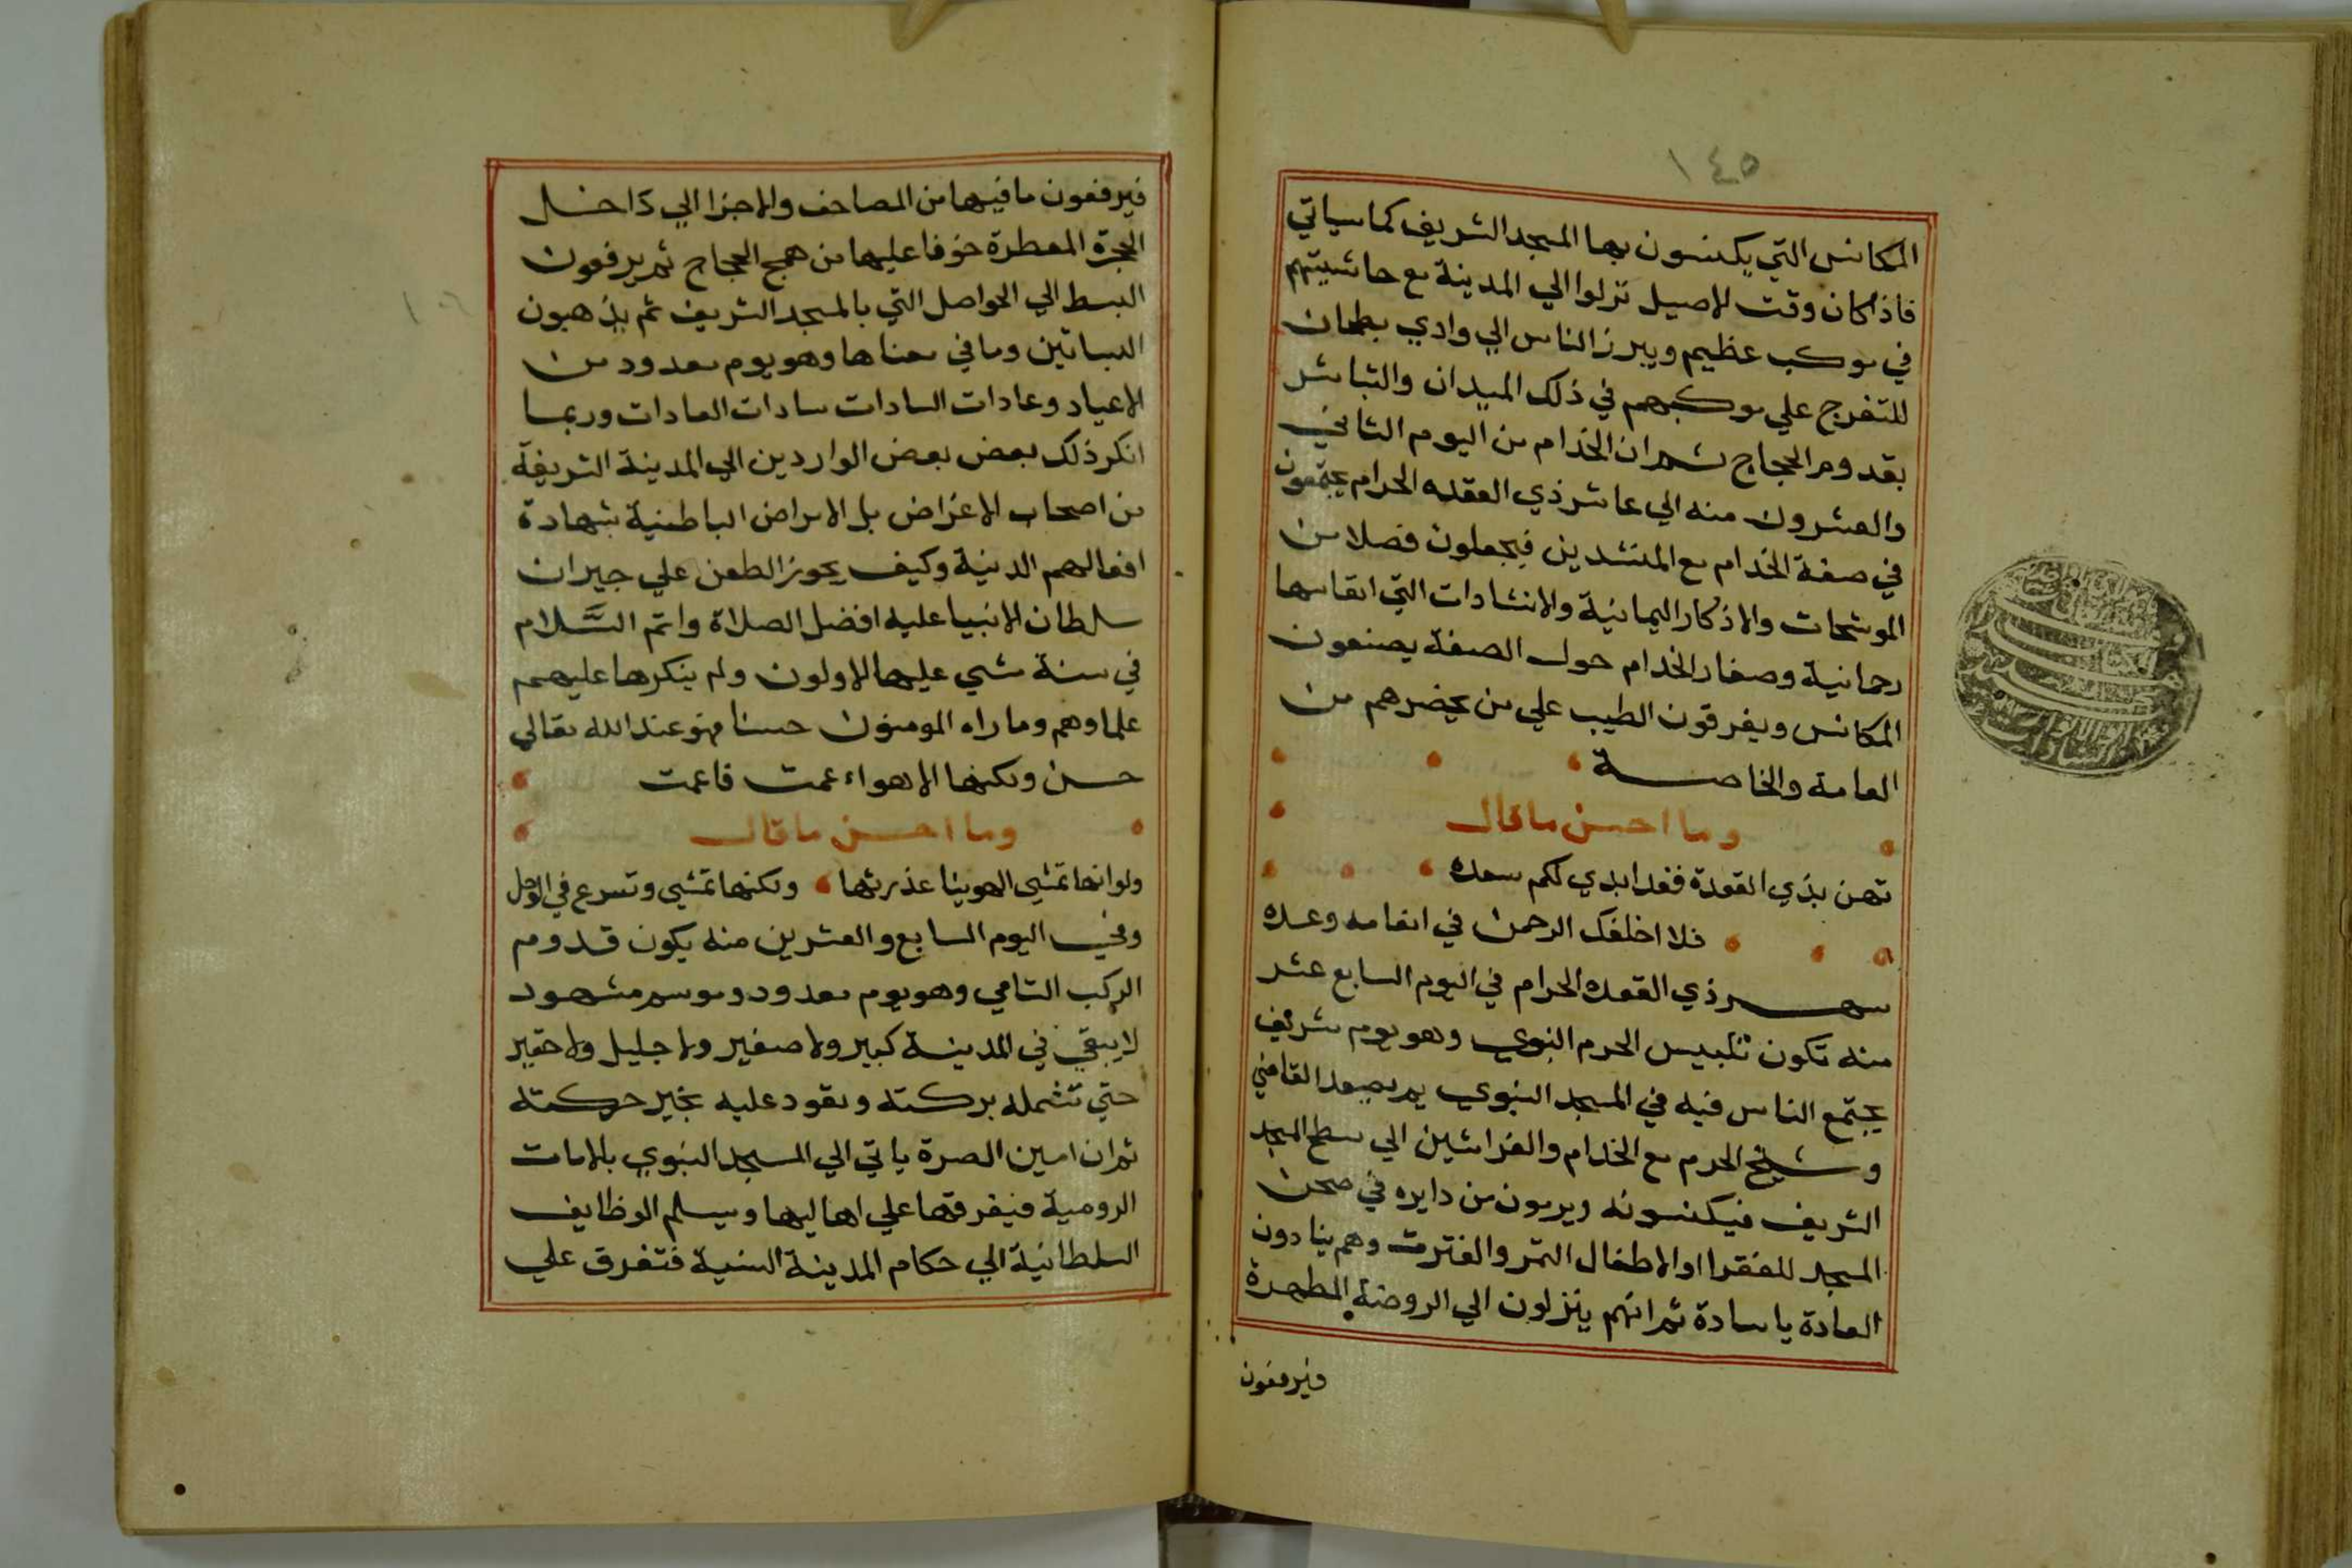 ١٤٥
المكانس التي يكنسون بها المسجد الشريف كما سياتي
فاذا كان وقت الاصيل نزلوا الي المدينة مع حاشيتهم
في موكب عظيم ويبرز الناس الي وادي بطحان
للتفرج علي موكبهم في ذلك الميدان والتباشر
بقدوم الحجاج ثم ان الخدام من اليوم الثاني
والعشرون منه الي عاشر ذي القعده الحرام يجتمعون
في صفة الخدام مع المنشدين فيجعلون فصلا من
الموشحات والاذكار اليمانية والانشادات التي انفاسها
رحمانية وصغار الخدام حول الصفة يصنعون
المكانس ويفرقون الطيب علي من يحضرهم من
العامة والخاصة
وما احسن ما قال
تهن بذي القعدة فقد ابدي لكم سعده
فلا اخلفك الرحمن في انعامه وعده
شهر ذي القعده الحرام في اليوم السابع عشر
منه تكون تلبيس الحرم النبوي وهو يوم شريف
يجتمع الناس فيه في المسجد النبوي ثم يصعد القاضي
وشيخ الحرم مع الخدام والفراشين الي سطح المسجد
الشريف فيكنسونه ويرمون من دايره في صحن
المسجد للفقرا او الاطفال التمر والفترت وهم ينادون
العادة يا سادة ثم انهم ينزلون الي الروضة المطهرة
فيرفعون
فيرفعون ما فيها من المصاحف والاجزا الي داخل
الحجرة المعطرة خوفا عليها من همج الحجاج ثم يرفعون
البسط الي الحواصل التي بالمسجد الشريف ثم يذهبون
البساتين وما في معناها وهو يوم معدود من
الاعياد وعادات السادات سادات العادات وربما
انكر ذلك بعض بعض الواردين الي المدينة الشريفة
من اصحاب الاغراض بل الامراض الباطنية بشهادة
افعالهم الدنية وكيف يجوز الطعن علي جيران
سلطان الانبيا عليه افضل الصلاة واتم السَّلام
في سنة مشي عليها الاولون ولم ينكرها عليهم
علماوهم وما راه المومنون حسنا فهو عند الله تعالي
حسن ولكنها الاهواء عمت فاعمت
وما احسن ما قال
ولو انها تمشي الهوينا عذرتها ولكنها تمشي وتسرع في الوحل
وفي اليوم السابع والعشرين منه يكون قدوم
الركب الشامي وهو يوم معدود وموسم مشهود
لا يبقي في المدينة كبير ولا صغير ولا جليل ولا حقير
حتي تشمله بركته وتعود عليه بخير حركته
ثم ان امين الصرة ياتي الي المسجد النبوي بالامات
الرومية فيفرقها علي اهاليها ويسلم الوظايف
السلطانية الي حكام المدينة السنية فتفرق علي